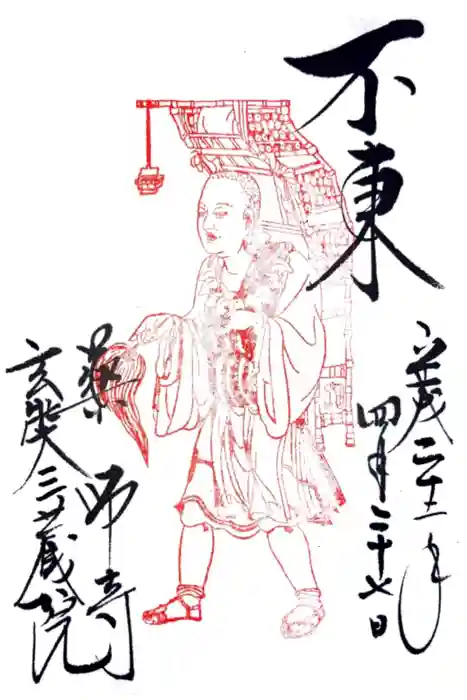 不東
平成二十二年
四月二十七日
薬師寺
玄奘三蔵院